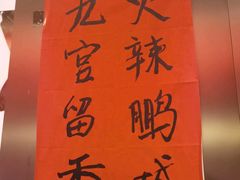 火辣鹏城
九宫留香